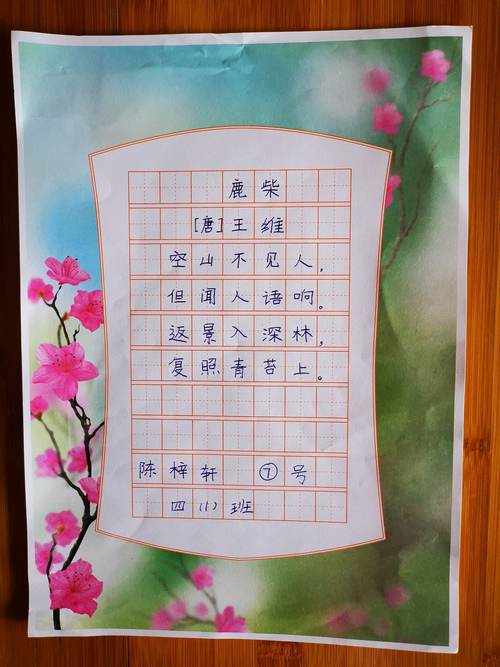 鹿柴
[唐]王维
空山不见人，
但闻人语响。
返景入深林，
复照青苔上。
陈梓轩 ⑦号
四(1)班